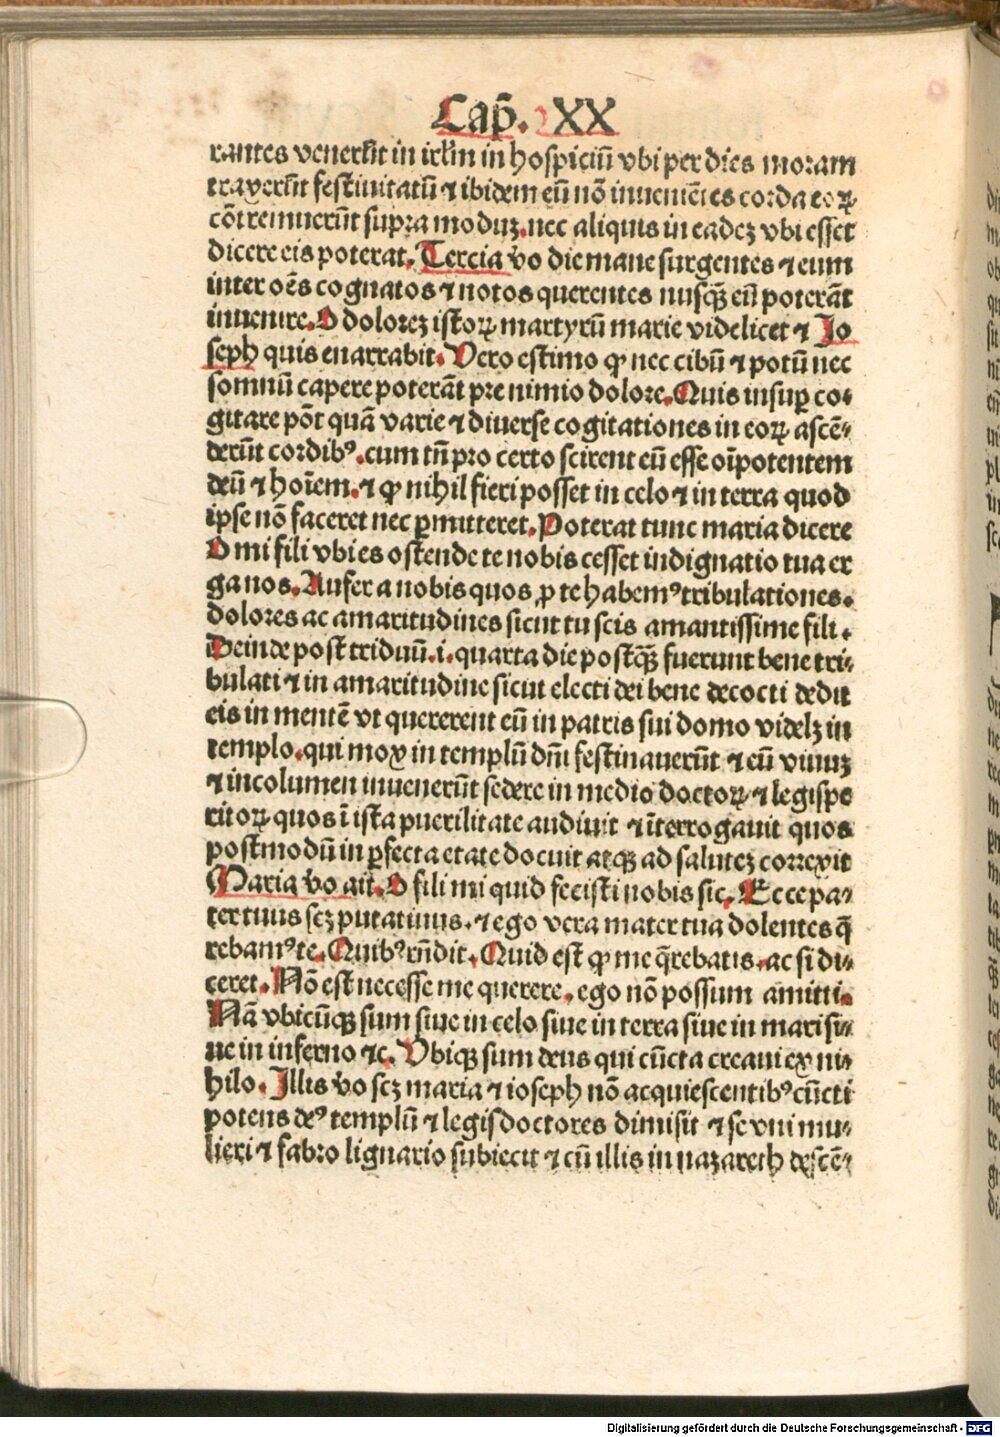 Cap̄. XX
rantes venerūt in irlm̄ in hospiciū vbi per dies moram
traxerūt festiuitatū ⁊ ibidem eū nō inuenientes corda eoꝝ
cōtremuerūt supra moduꝫ. nec aliquis in eadeꝫ vbi esset
dicere eis poterat. Tercia v̄o die mane surgentes ⁊ eum
inter oēs cognatos ⁊ notos querentes nusqꝫ̄ eū poterāt
inuenire. O doloreꝫ istoꝝ martyrū marie videlicet ⁊ Jo
seph quis enarrabit. Vero estimo ꝙ nec cibū ⁊ potū nec
somnū capere poterāt pre nimio dolore. Quis insuꝑ co⸗
gitare pōt quā varie ⁊ diuerse cogitationes in eoꝝ ascē⸗
derūt cordibꝰ. cum tn̄ pro certo scirent eū esse oīpotentem
deū ⁊ hoīem. ⁊ ꝙ nihil fieri posset in celo ⁊ in terra quod
ipse nō faceret nec ꝑmitteret. Poterat tunc maria dicere
O mi fili vbi es ostende te nobis cesset indignatio tua er
ga nos. Aufer a nobis quos ꝓ te habemꝰ tribulationes.
dolores ac amaritudines sicut tu scis amantissime fili.
Deinde post triduū .i. quarta die postqꝫ̄ fuerunt bene tri⸗
bulati ⁊ in amaritudine sicut electi dei bene decocti dedit
eis in mentē vt quererent eū in patris sui domo videlꝫ in
templo. qui mox in templū dn̄i festinauerūt ⁊ eū viuuꝫ
⁊ incolumen inuenerūt sedere in medio doctoꝝ ⁊ legispe
ritoꝝ quos ī ista puerilitate audiuit ⁊ īterrogauit quos
postmodū in ꝑfecta etate docuit atqꝫ ad saluteꝫ correxit
Maria v̄o ait. O fili mi quid fecisti nobis sic. Ecce pa⸗
ter tuus scꝫ putatiuus. ⁊ ego vera mater tua dolentes q̄
rebamꝰ te. Quibꝰ rn̄dit. Quid est ꝙ me q̄rebatis. ac si di⸗
ceret. Nō est necesse me querere. ego nō possum amitti.
Nā vbicūqꝫ sum siue in celo siue in terra siue in mari si⸗
ue in inferno ⁊c. Vbiqꝫ sum deus qui cūcta creaui ex ni⸗
hilo. Illis v̄o scꝫ maria ⁊ ioseph nō acquiescentibꝰ cūcti
potens deꝰ templū ⁊ legisdoctores dimisit ⁊ se vni mu⸗
lieri ⁊ fabro lignario subiecit ⁊ cū illis in nazareth descē⸗
Digitalisierung gefördert durch die Deutsche Forschungsgemeinschaft - DFG